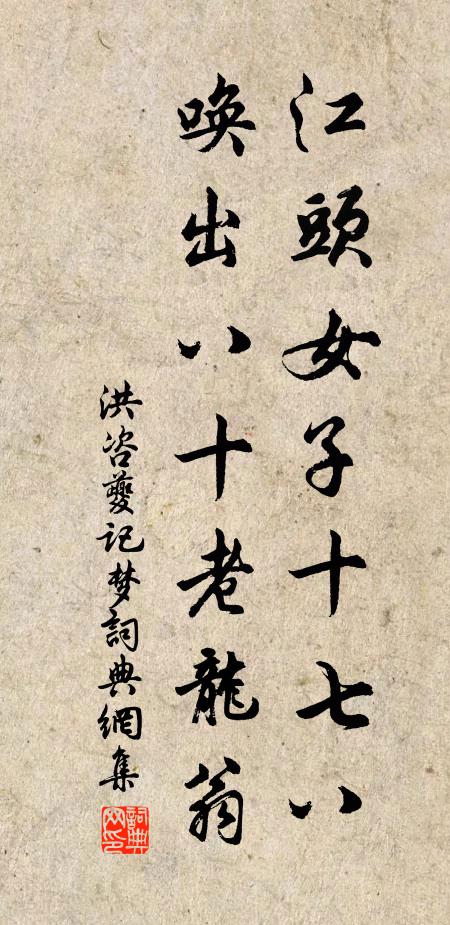 江頭女子十七八
喚出八十老龍翁
洪咨夔記梦詞典網集
詞典網印